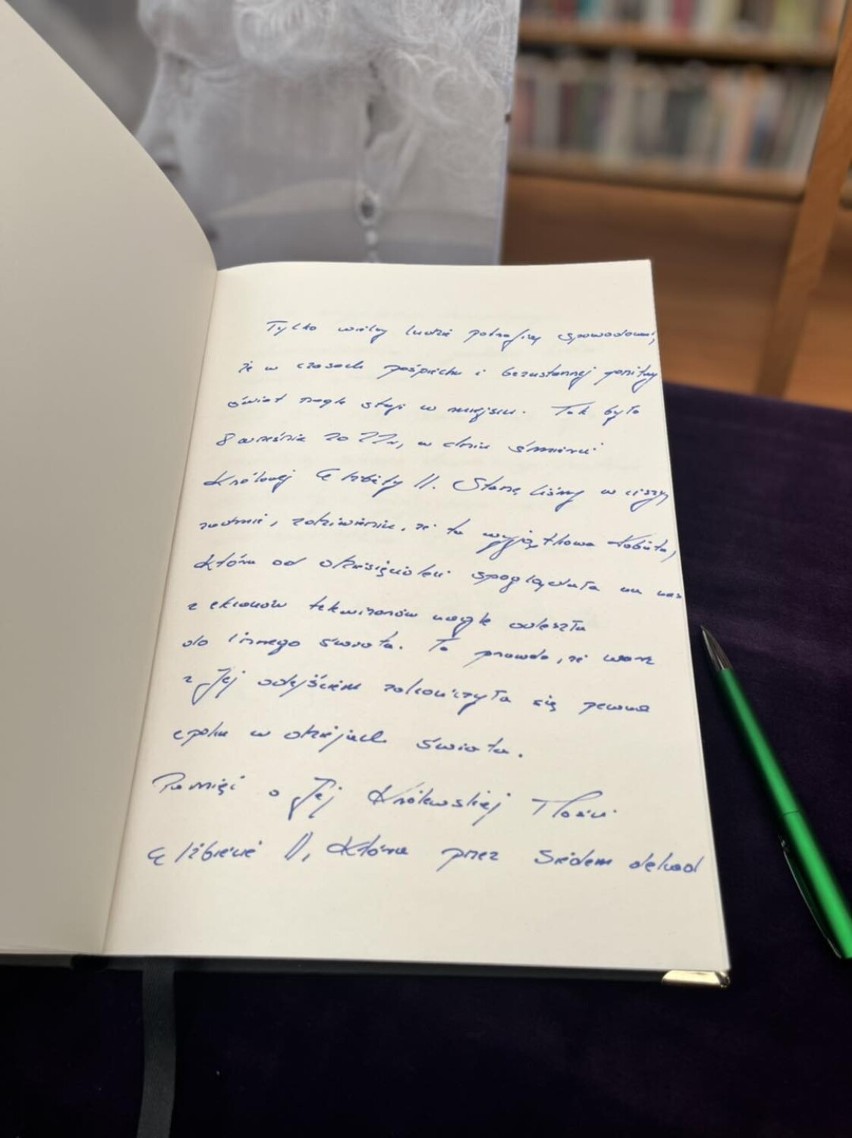 Tylko wielcy ludzie potrafią spowodować,
że w czasach pośpiechu i bezustannej gonitwy
świat nagle stoji w miejscu. Tak było
8 września 2022r., w dniu śmierci
Królowej Elżbiety II. Stanęliśmy w ciszy
zadumie, zdziwieniu, że ta wyjątkowa Kobieta,
która od dziesięcioleci spoglądała na nas
z ekranów telewizorów nagle odeszła
do innego świata. To prawda, że wraz
z Jej odejściem zakończyła się pewna
epoka w dziejach świata.
Pamięć o Jej Królewskiej Mości
Elżbiecie II, która przez siedem dekad